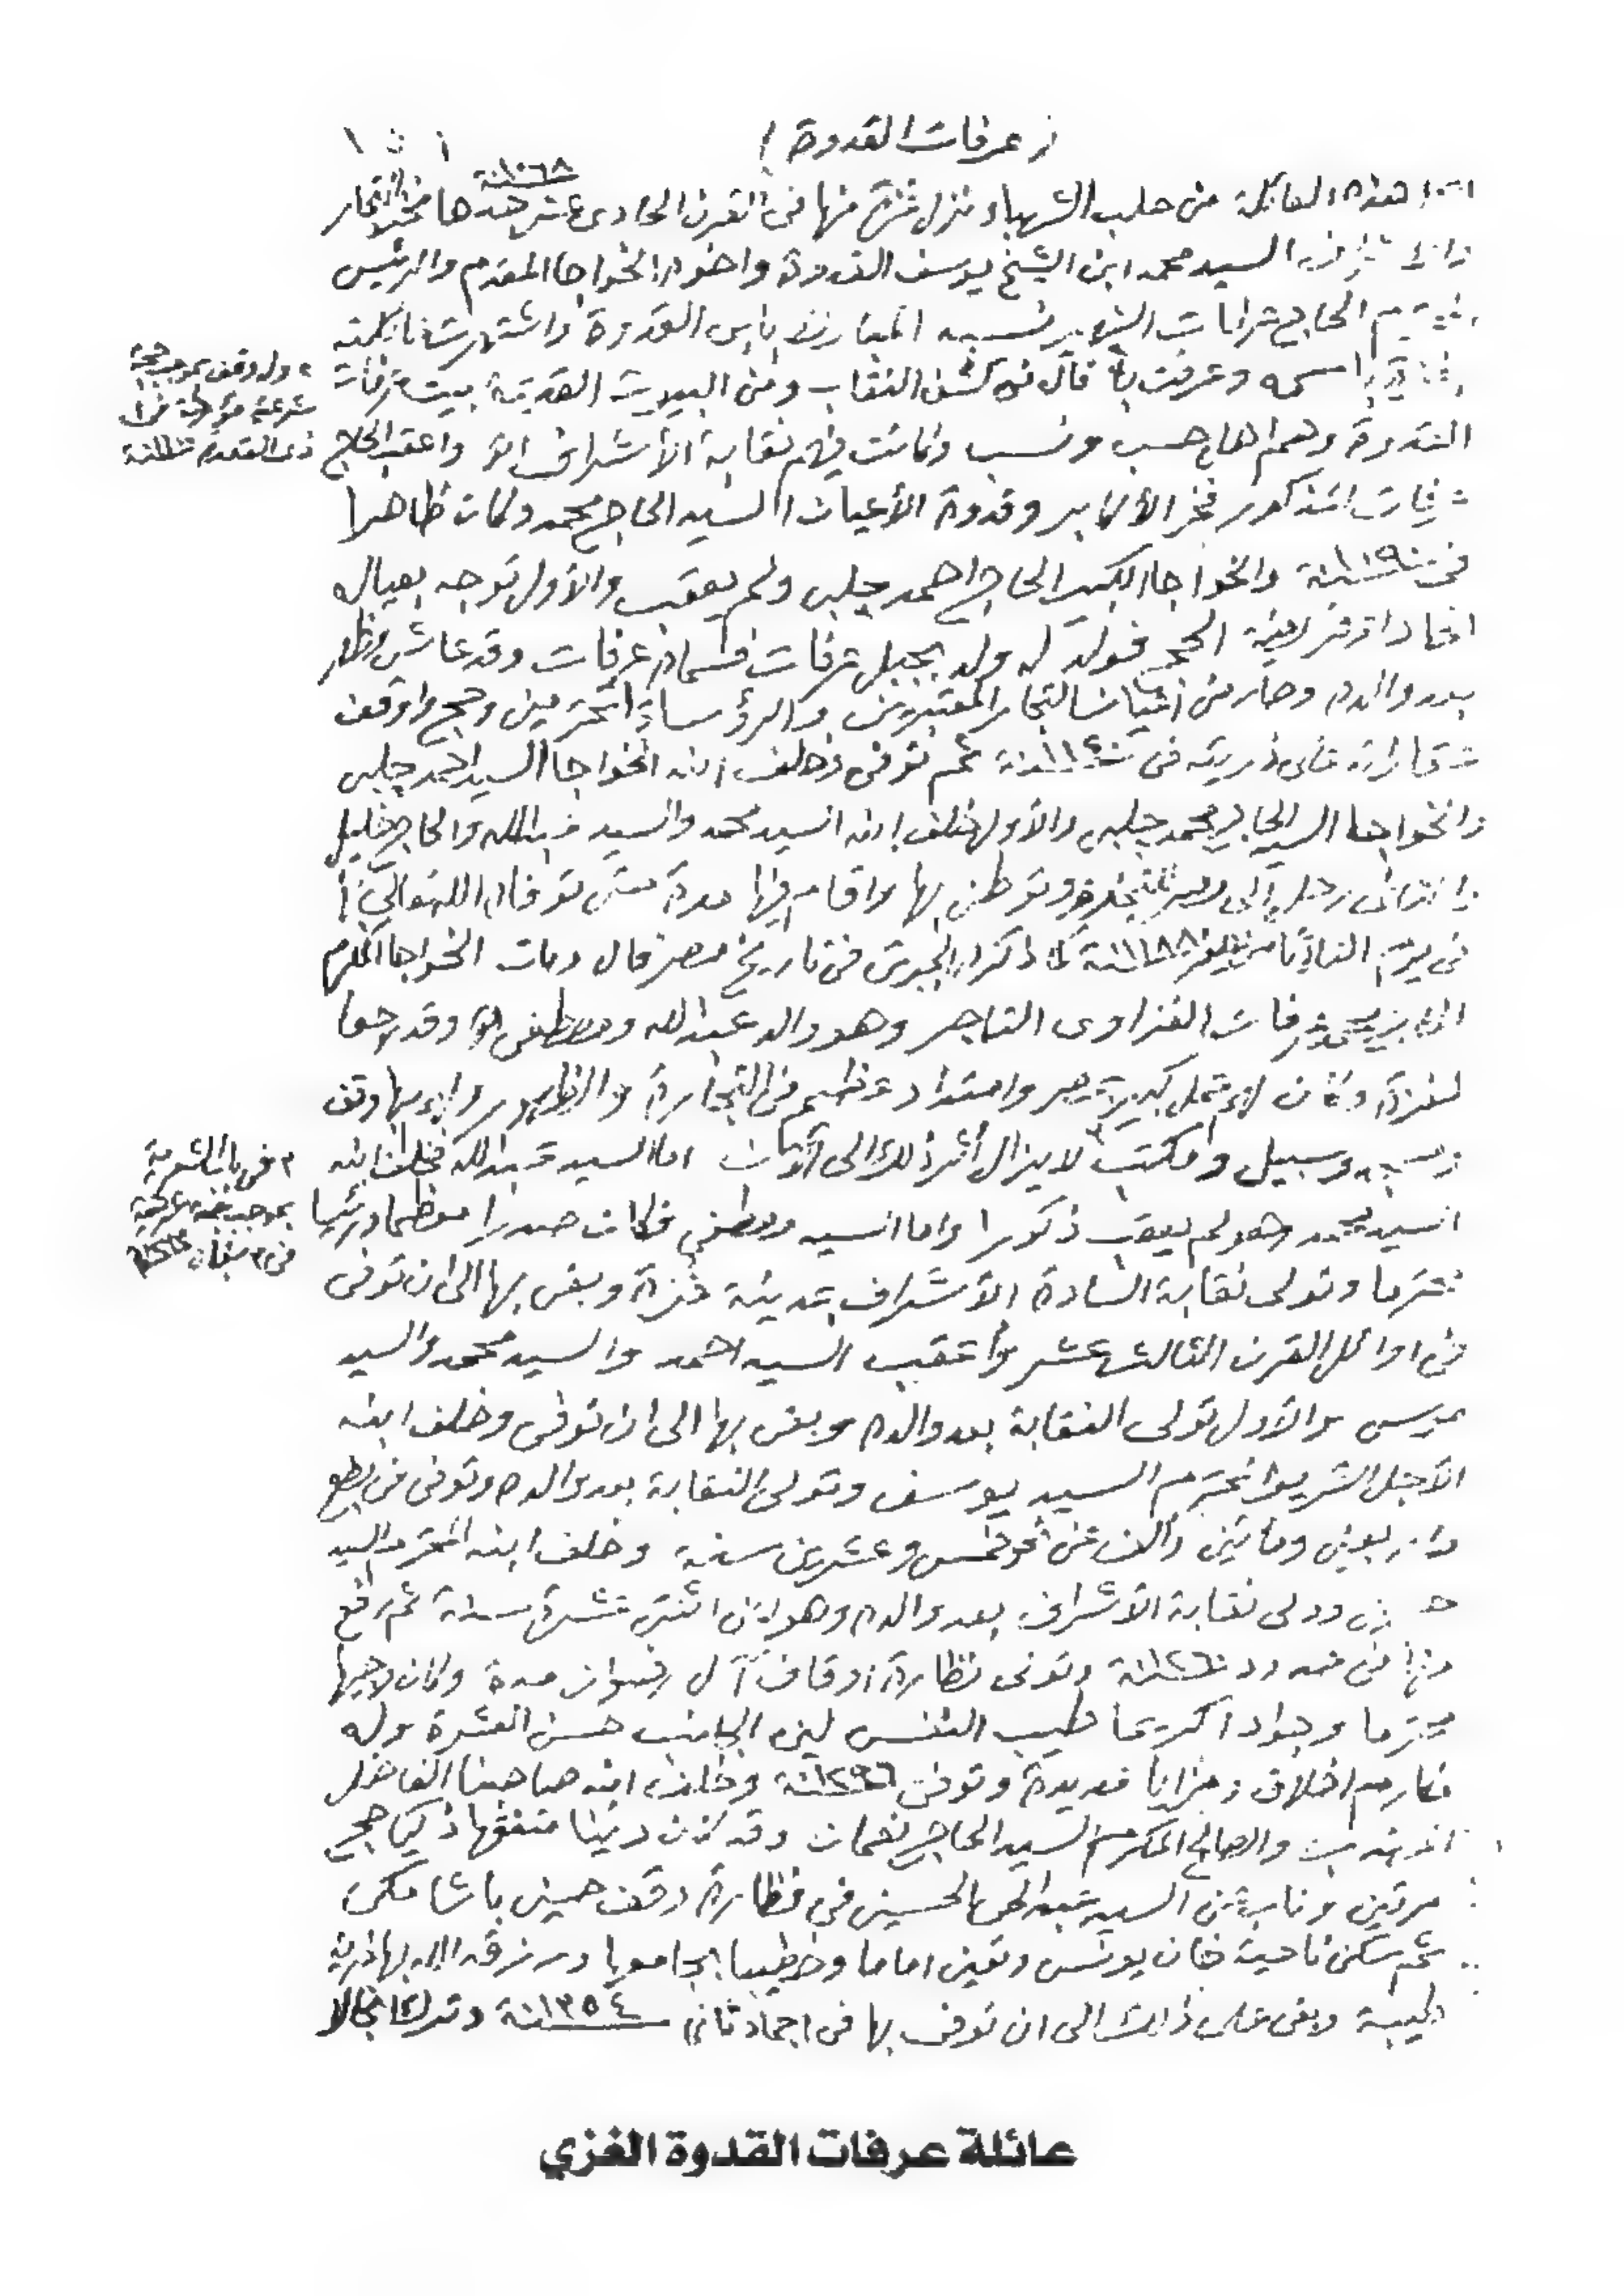 ( عرفات القدوة )
هذه العائلة من حلب الشهباء نزل غزة منها فى القرن الحادى عشر سنة ١٠٦٨ جدها فخر التجار
السيد محمد ابن الشيخ يوسف القدوة واخوه الخواجا المقدم والرئيس
الحاج عرفات الشهير نسبه المبارك بابن القدوة واشتهرت عائلته
باسمه وعرفت به قال فى كشف النقاب ومن البيوت القديمة بيت عرفات
القدوة وهم اهل حسب ونسب وكانت فيهم نقابة الأشراف الخ واعقب الحاج
عرفات المذكور فخر الأكابر وقدوة الأعيان السيد الحاج محمد وكان ظاهرا
فى سنة ١١٩٠ والخواجا الكبير الحاج احمد چلبى ولم يعقب والأول توجه بعياله
الحج فولد له ولد بجبل عرفات فسماه عرفات وقد عاش وظهر
بعد والده وصار من أعيان التجار المعتبرين والرؤساء المحترمين وحج واوقف
عقاراته على ذريته فى سنة ثم توفى وخلف ابنه الخواجا السيد احمد چلبى
والخواجا السيد الحاج محمد چلبى والأول خلف ابنه السيد محمد والسيد عبدالله والحاج خليل
والثانى رحل الى مصر للتجارة وتوطن بها واقام فيها مدة حتى توفاه الله تعالى
فى يوم سنة ١١٨٨ كما ذكره الجبرتى فى تاريخ مصر قال ومات الخواجا المكرم
الحاج محمد عرفات الغزاوى التاجر وهو والد عبدالله ومصطفى الخ وقد رجعا
لغزة وكان لهم محل كبير بمصر وامتداد عظيم فى التجارة والظهور ولهم بها وقف
وسبيل ومكتب لا يزال أثر ذلك الى الآن اما السيد عبدالله فخلف ابنه
السيد محمد وهو لم يعقب ذكورا واما السيد مصطفى فكان صدرا معظما ورئيسا
محترما وتولى نقابة السادة الأشراف بمدينة غزة وبقى بها الى ان توفى
فى اوائل القرن الثالث عشر وأعقب السيد احمد والسيد محمد والسيد
موسى والأول تولى النقابة بعد والده وبقى بها الى ان توفى وخلف ابنه
الأجل الشريف المحترم السيد يوسف وتولى النقابة بعد والده وتوفى فى بضع
واربعين ومائتين والف عن نحو خمس وعشرين سنة وخلف ابنه المحترم السيد
وولى نقابة الأشراف بعد والده وهو ابن اثنتى عشرة سنة ثم رفع
منها فى حدود سنة ١٢٦٠ وتولى نظارة اوقاف آل رضوان مدة وكان وجيها
محترما وجوادا كريما طيب النفس لين الجانب حسن العشرة وله
مكارم اخلاق ومزايا عديدة وتوفى سنة ١٢٩٦ وخلف ابنه صاحبنا الفاضل
المهذب والصالح المكرم السيد الحاج نعمان وقد كان دينا متفقها ذكيا حج
مرتين وناب عن السيد عبدالحى الحسينى فى نظارة وقف حسين باشا مكى
ثم سكن ناحية خان يونس وتعين اماما وخطيبا بجامعها ورزقه الله بها ذرية
طيبة وبقى على ذلك الى ان توفى بها فى جماد ثانى سنة ١٣٥٤ وترك انجالا
وله وقف بموجب حجة
شرعية مؤرخة فى
ذى القعدة
فى باب الشعرية
بموجب حجة شرعية
فى
عائلة عرفات القدوة الغزي